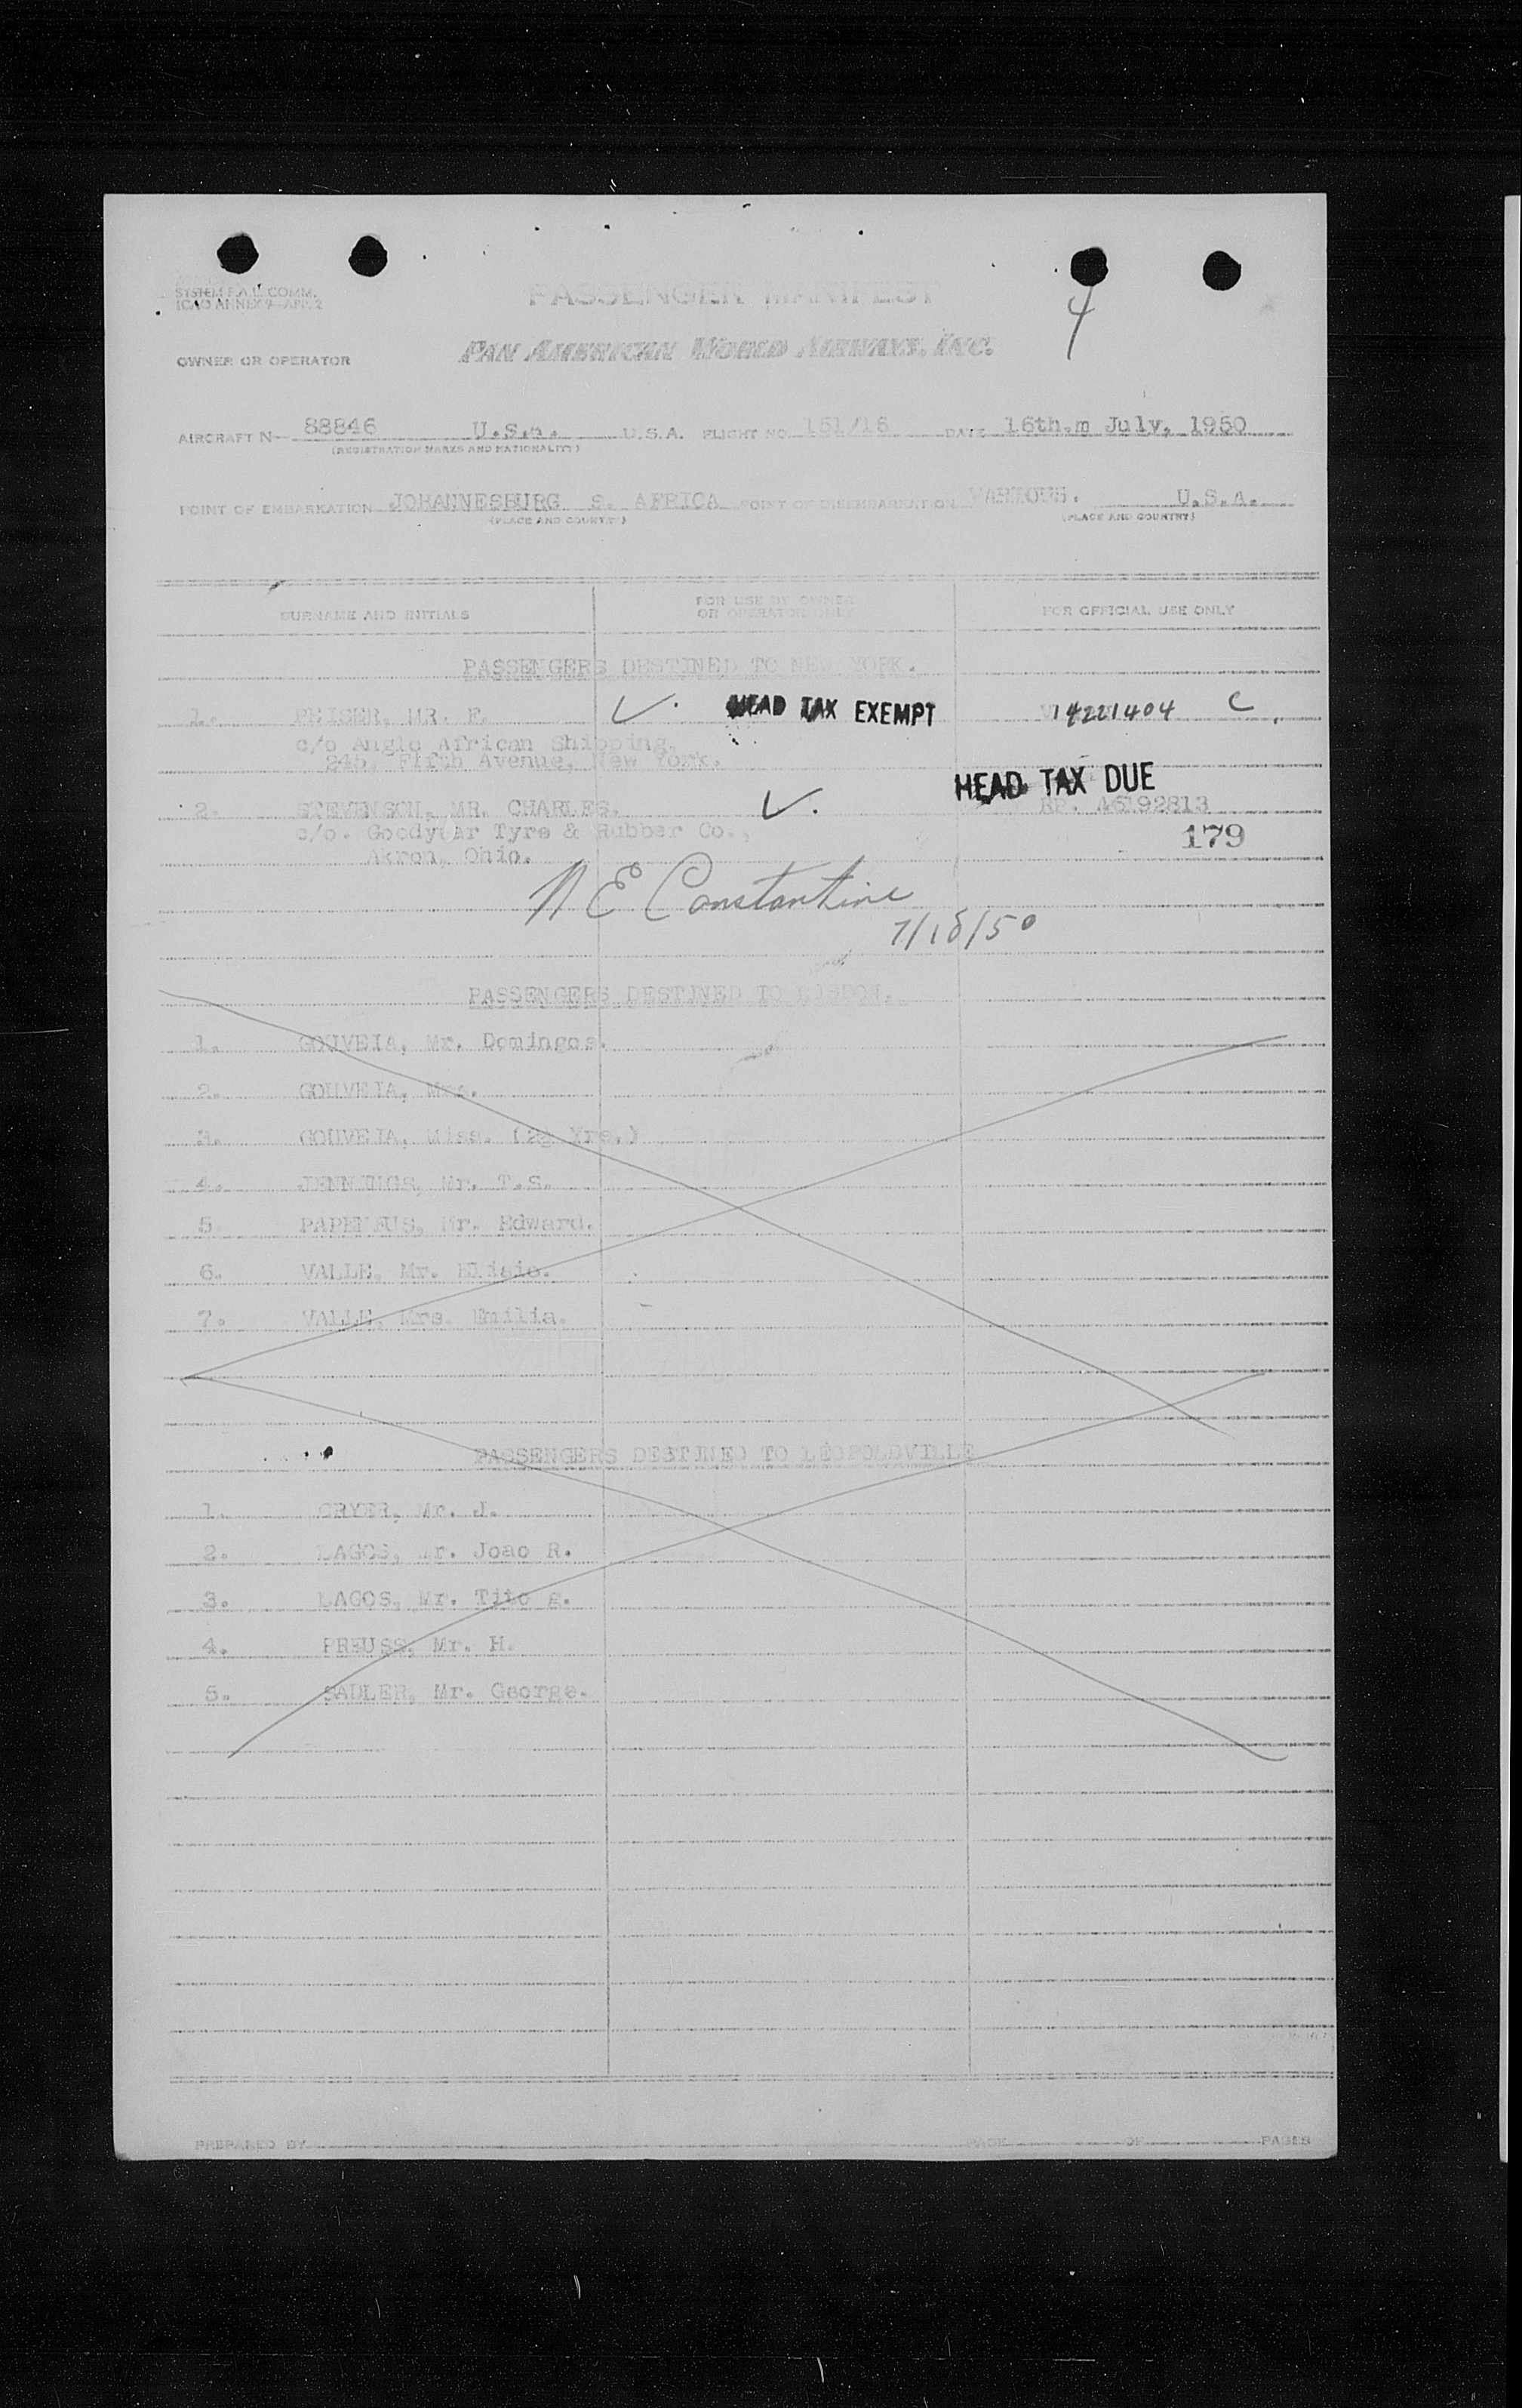 SYSTEM F.A.L. COMM.
ICAO ANNEX 9-APP. 2
PASSENGER MANIFEST
4
OWNER OR OPERATOR PAN AMERICAN WORLD AIRWAYS, INC.
AIRCRAFT N 88846 U.S.A. U.S.A. FLIGHT NO. 151/16 DATE 16th.m July, 1950
(REGISTRATION MARKS AND NATIONALITY)
POINT OF EMBARKATION JOHANNESBURG S. AFRICA POINT OF DISEMBARKATION VARIOUS. U.S.A.
(PLACE AND COUNTRY) (PLACE AND COUNTRY)
SURNAME AND INITIALS FOR USE BY OWNER OR OPERATOR ONLY FOR OFFICIAL USE ONLY
PASSENGERS DESTINED TO NEW YORK.
1. MR. F. HEAD TAX EXEMPT 14221404 C
c/o Anglo African Shipping,
245, Fifth Avenue, New York.
HEAD TAX DUE
2. STEVENSON, MR. CHARLES. RP. A6192813
c/o. Goodyear Tyre & Rubber Co., 179
Akron, Ohio.
N E Constantine
7/18/50
PASSENGERS DESTINED TO LISBON.
1. GOUVEIA, Mr. Domingos.
2. GOUVEIA, Mrs.
3. GOUVEIA, Miss. (2½ Yrs.)
4. JENNINGS, Mr. T.S.
5. PAPENFUS, Mr. Edward.
6. VALLE, Mr. Elisio.
7. VALLE, Mrs. Emilia.
PASSENGERS DESTINED TO LEOPOLDVILLE
1. CRYER, Mr. J.
2. LAGOS, Mr. Joao R.
3. LAGOS, Mr. Tito
4. PREUSS, Mr. H.
5. SADLER, Mr. George.
PREPARED BY PAGE OF PAGES